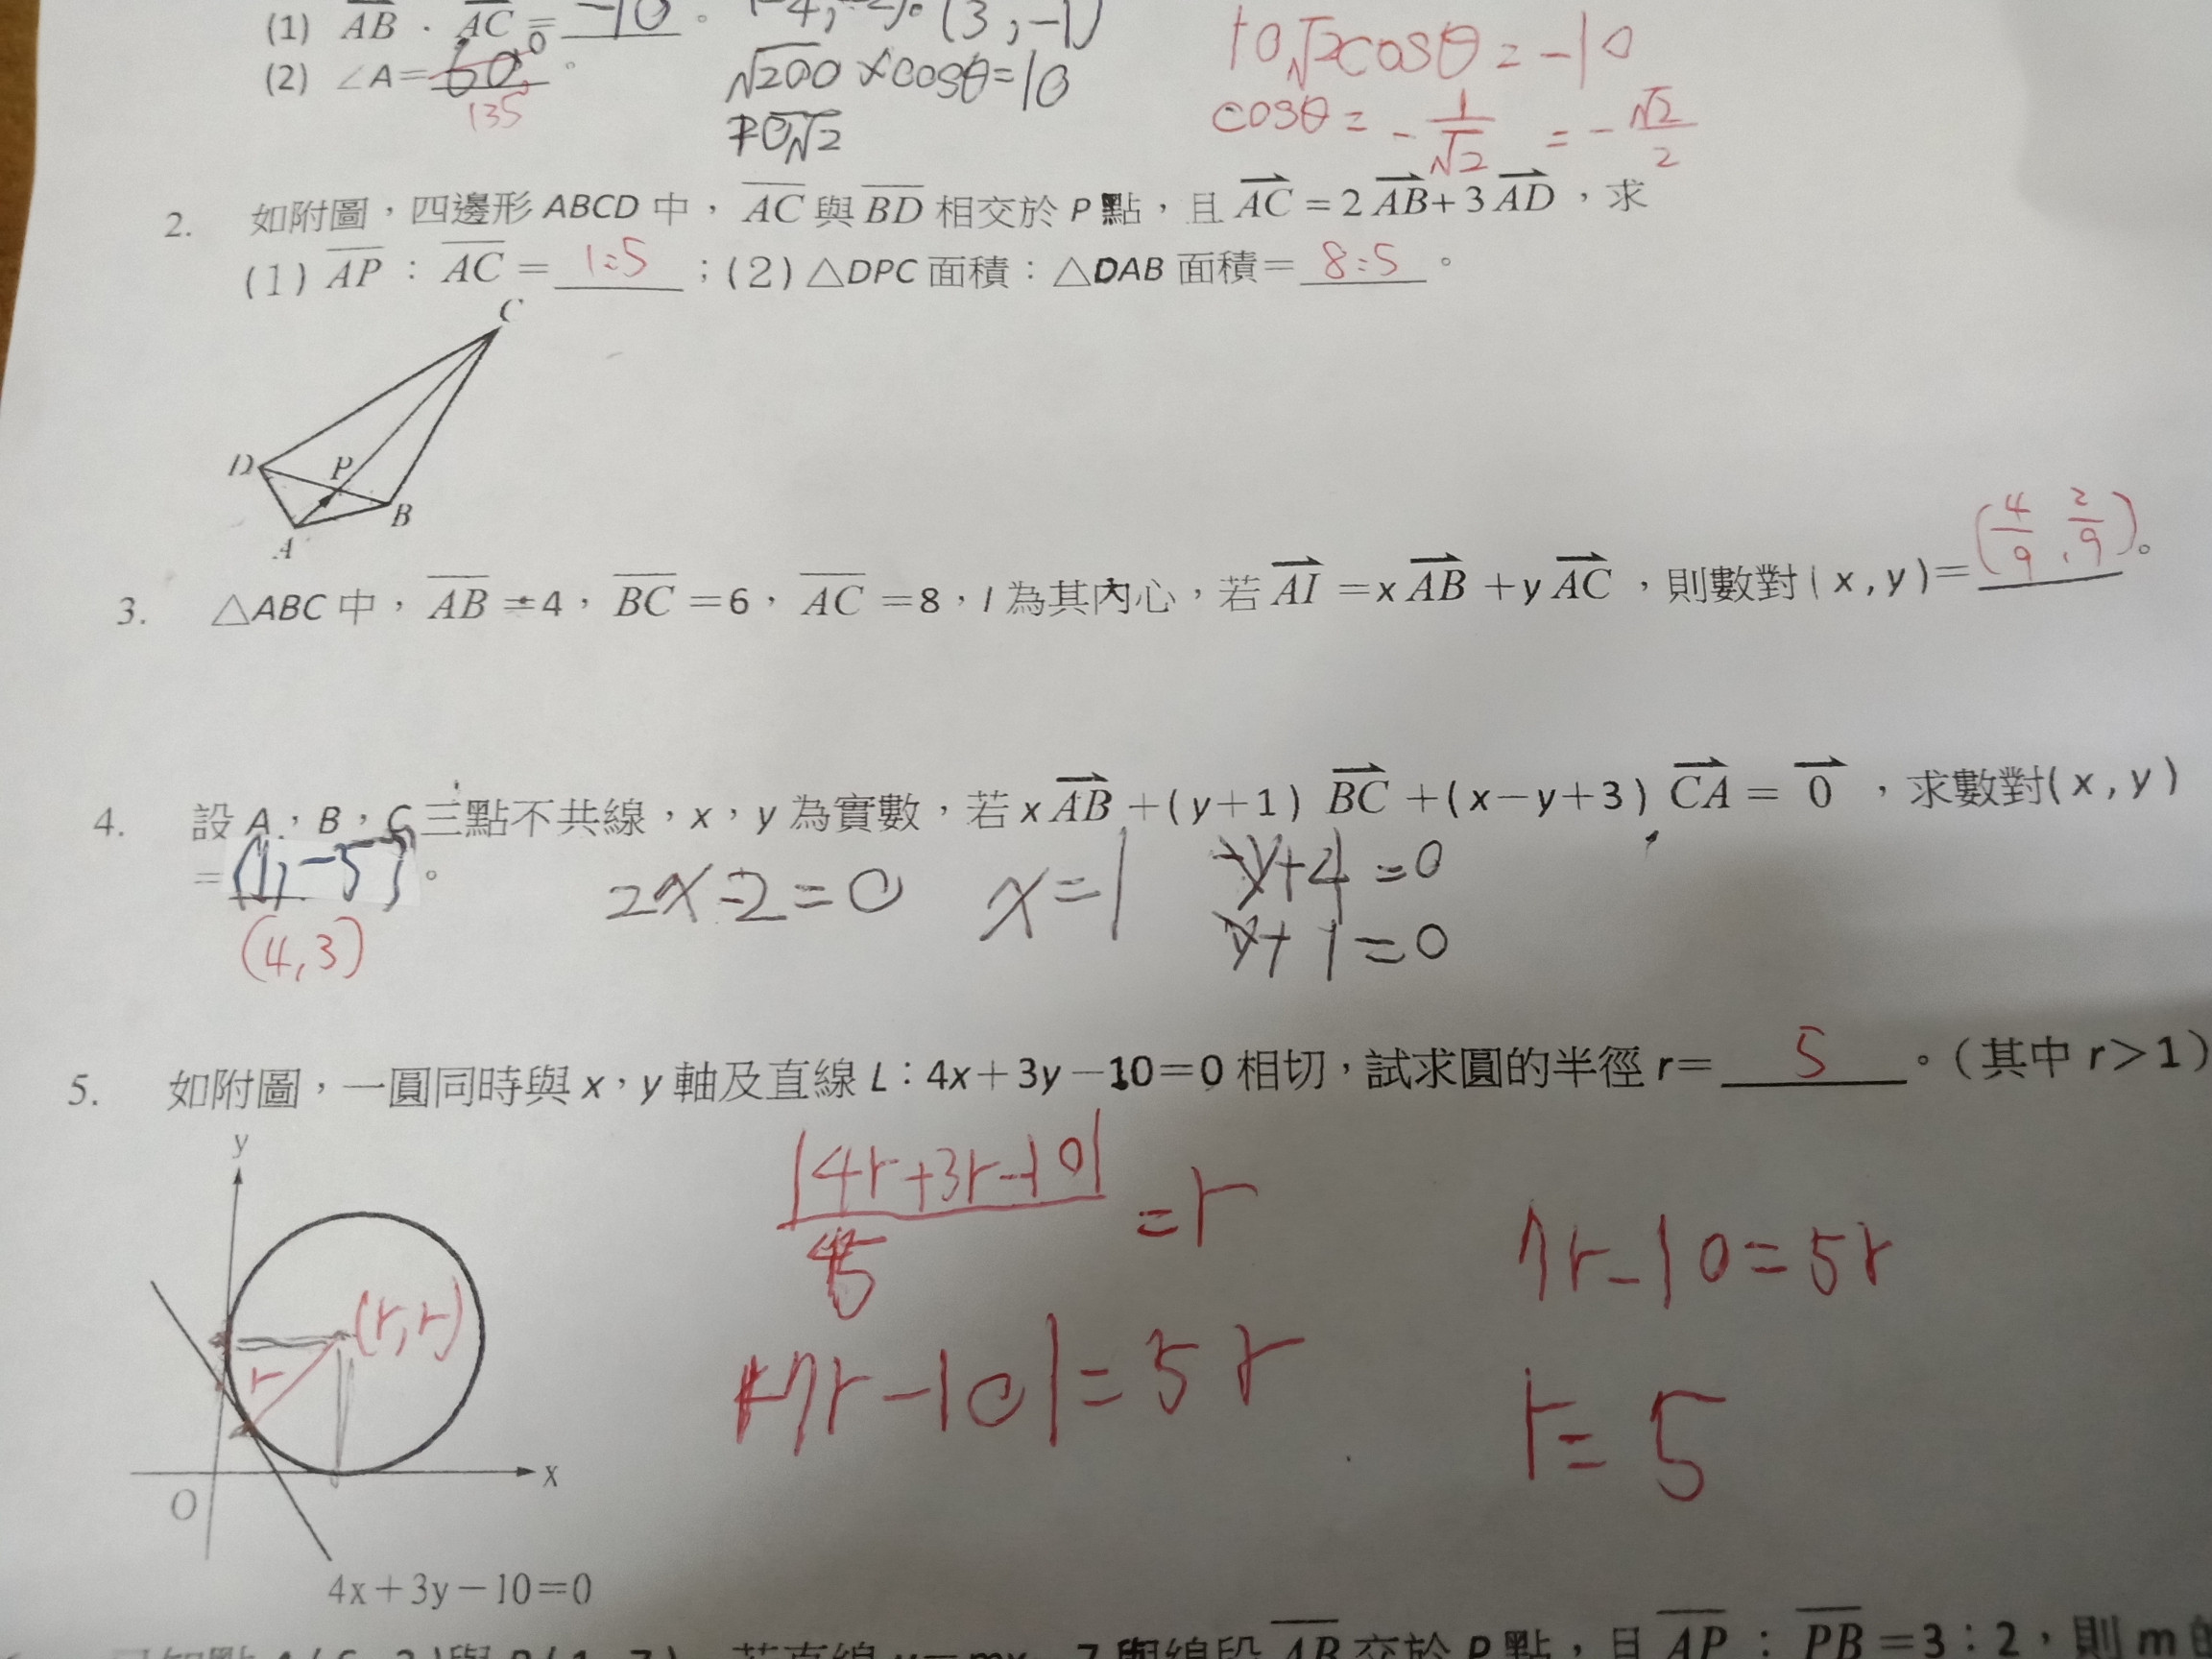 (1) AB · AC = -10 。 (-4, -2)·(3, -1)
(2) ∠A= 60° 。 √200 × cosθ=10
135° 10√2
10√2cosθ = -10
cosθ = -1/√2 = -√2/2
2. 如附圖，四邊形 ABCD 中，AC 與 BD 相交於 P 點，且 AC = 2 AB + 3 AD ，求
(1) AP : AC = 1:5 ；(2) △DPC 面積：△DAB 面積＝ 8:5 。
C
D P
B
A
3. △ABC 中，AB =4，BC =6，AC =8，I 為其內心，若 AI =x AB +y AC ，則數對 ( x , y )= (4/9, 2/9) 。
4. 設 A，B，C 三點不共線，x，y 為實數，若 x AB +(y+1) BC +(x-y+3) CA = 0 ，求數對( x , y )
= (1, -5) 。 2x-2=0 x=1 -y+4=0
(4,3) y+1=0
5. 如附圖，一圓同時與 x，y 軸及直線 L：4x+3y-10=0 相切，試求圓的半徑 r= 5 。（其中 r＞1）
y
|4r+3r-10|/5 = r
7r-10=5r
(r,r)
r
|7r-10|=5r
r=5
x
O
4x+3y-10=0
AB 交於 P 點，且 AP : PB =3：2，則 m 的